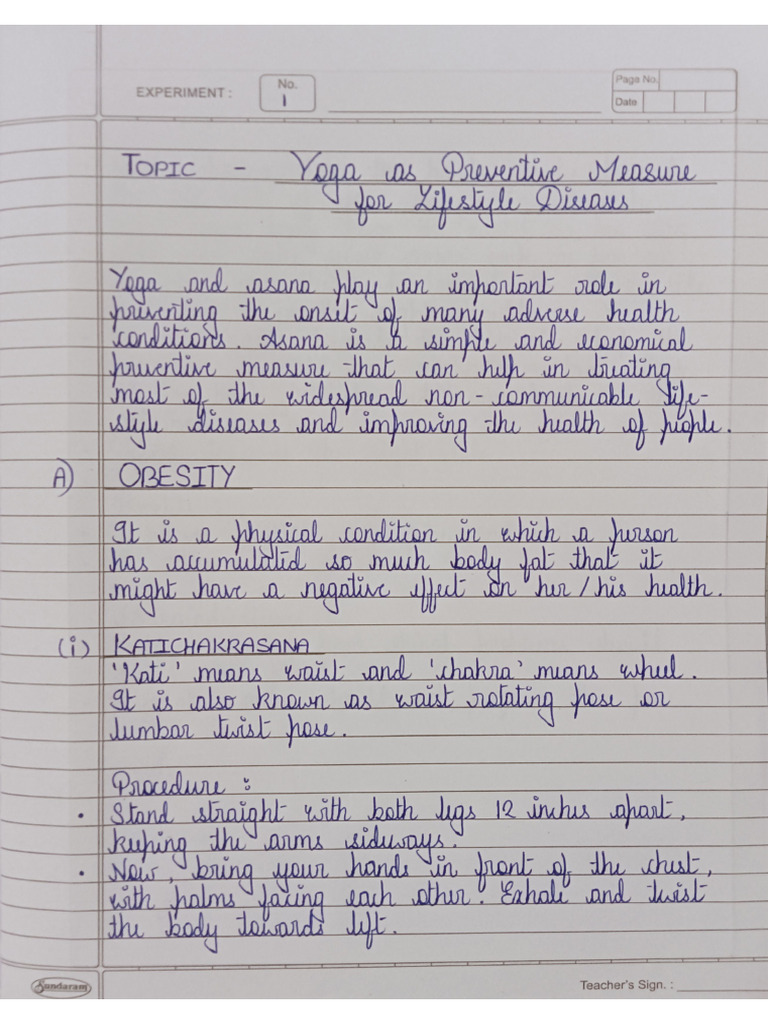 EXPERIMENT : No. 1 Page No.
Date
TOPIC - Yoga as Preventive Measure
for Lifestyle Diseases
Yoga and asana play an important role in
preventing the onset of many adverse health
conditions. Asana is a simple and economical
preventive measure that can help in treating
most of the widespread non-communicable life-
style diseases and improving the health of people.
A) OBESITY
It is a physical condition in which a person
has accumulated so much body fat that it
might have a negative effect on her/his health.
(i) KATICHAKRASANA
'Kati' means waist and 'chakra' means wheel.
It is also known as waist rotating pose or
lumbar twist pose.
Procedure :
• Stand straight with both legs 12 inches apart,
keeping the arms sideways.
• Now, bring your hands in front of the chest,
with palms facing each other. Exhale and twist
the body towards left.
Sundaram Teacher's Sign. :